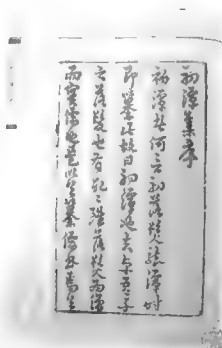 初潭集序
初潭者何言初落髮龍潭時
即纂此故曰初潭也夫卓吾子
之落髮也有故故雖落髮為僧
而實儒也是以首纂儒書焉首